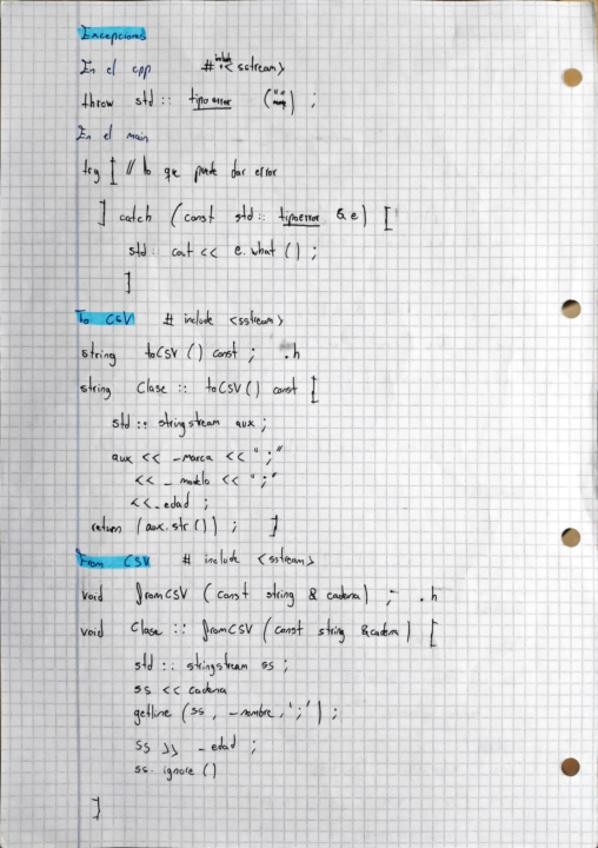 Excepciones
En el cpp # include <sstream>
throw std :: tipo error (" ") ;
En el main
try [ // lo que puede dar error
] catch (const std :: tipoerror & e) [
std :: cout << e.what () ;
]
To CSV # include <sstream>
string toCSV () const ; .h
string Clase :: toCSV () const [
std :: stringstream aux ;
aux << _Marca << " ; "
<< _ modelo << " ; "
<< _edad ;
return (aux.str ()) ; ]
From CSV # include <sstream>
void fromCSV (const string & cadena) ; .h
void Clase :: fromCSV (const string &cadena) [
std :: stringstream ss ;
ss << cadena
getline (ss , _nombre , ' ; ' ) ;
ss >> _edad ;
ss. ignore ()
]